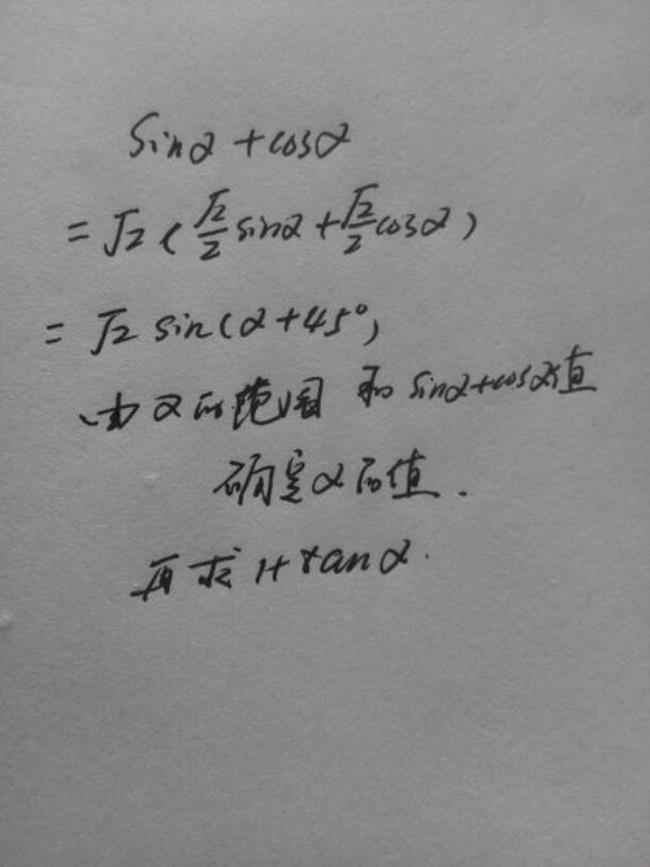 sinα+cosα
=√2(√2/2 sinα+√2/2 cosα)
=√2 sin(α+45°)
由α的范围和sinα+cosα值
确定α的值.
再求1+tanα.